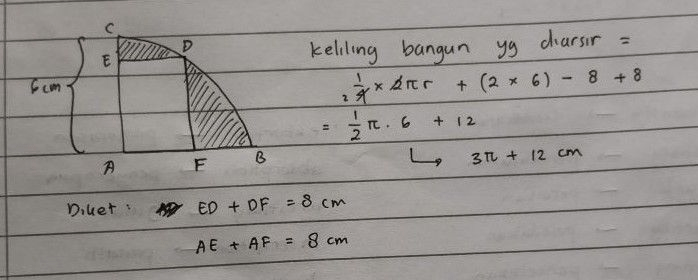 C
E
D
6 cm
A
F
B
keliling bangun yg diarsir =
1/4 × 2πr + (2 × 6) - 8 + 8
2
= 1/2 π . 6 + 12
↳ 3π + 12 cm
Diket : ED + DF = 8 cm
AE + AF = 8 cm